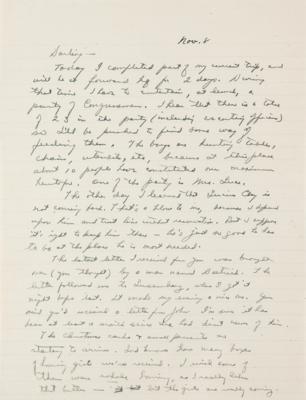 Nov. 8
Darling —
Today I completed part of my current trip, and
will be at forward hq for 2 days. During
that time I have to entertain, at lunch, a
party of Congressmen. I hear that there is a total
of 23 in the party (including escorting officers)
so I'll be pushed to find some way of
feeding them. The boys are hunting tables,
chairs, utensils, etc, because at this place
about 10 people have constituted our maximum
heretofore. One of the party is Mrs. Luce.
The other day I learned that Lucius Clay is
not coming back. That's a blow to me because I depend
upon him and trust him without reservation. But I suppose
it's right to keep him there — he's just as good to
be at the place he is most needed.
The latest letter I received from you was brought
over (you thought) by a man named
letter followed me to Luxembourg, where I got it
night before last. It made my evening a nice one. You
said you'd received a letter from John. I'm sure it has
been at least a month since I've had direct news of him.
The Christmas cards & small presents are
starting to arrive. Lord knows how many boxes
of we've received. I wish some of
them were , as I really like
that better — but the girls are